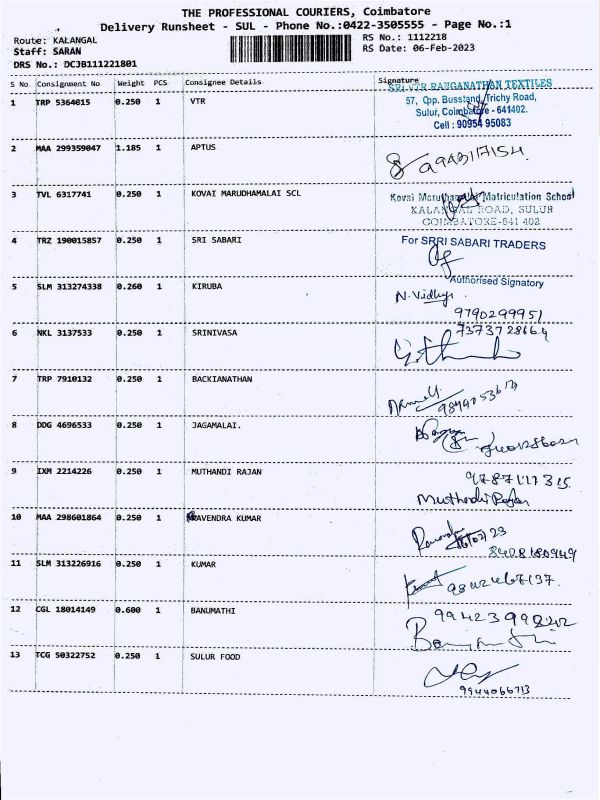 THE PROFESSIONAL COURIERS, Coimbatore
Delivery Runsheet - SUL - Phone No.:0422-3505555 - Page No.:1
Route: KALANGAL
RS No.: 1112218
Staff: SARAN
RS Date: 06-Feb-2023
DRS No.: DCJB111221801
S No Consignment No Weight PCS Consignee Details Signature
1 TRP 5364015 0.250 1 VTR
SRI VTR RANGANATHAN TEXTILES
57, Opp. Busstand, Trichy Road,
Sulur, Coimbatore - 641402.
Cell : 90954 95083
2 MAA 299359047 1.185 1 APTUS
3 TVL 6317741 0.250 1 KOVAI MARUDHAMALAI SCL
Kovai Marudhamalai Matriculation School
KALANGAL ROAD, SULUR
COIMBATORE-641 402
4 TRZ 190015857 0.250 1 SRI SABARI
For SRRI SABARI TRADERS
Authorised Signatory
5 SLM 313274338 0.260 1 KIRUBA
N. Vidhya
9790299951
6 NKL 3137533 0.250 1 SRINIVASA
7373728664
7 TRP 7910132 0.250 1 BACKIANATHAN
8 DDG 4696533 0.250 1 JAGAMALAI.
9 IXM 2214226 0.250 1 MUTHANDI RAJAN
9787117315
Muthandi Rajan
10 MAA 298601864 0.250 1 RAVENDRA KUMAR
11 SLM 313226916 0.250 1 KUMAR
9842467137.
12 CGL 18014149 0.600 1 BANUMATHI
13 TCG 50322752 0.250 1 SULUR FOOD
9944066713